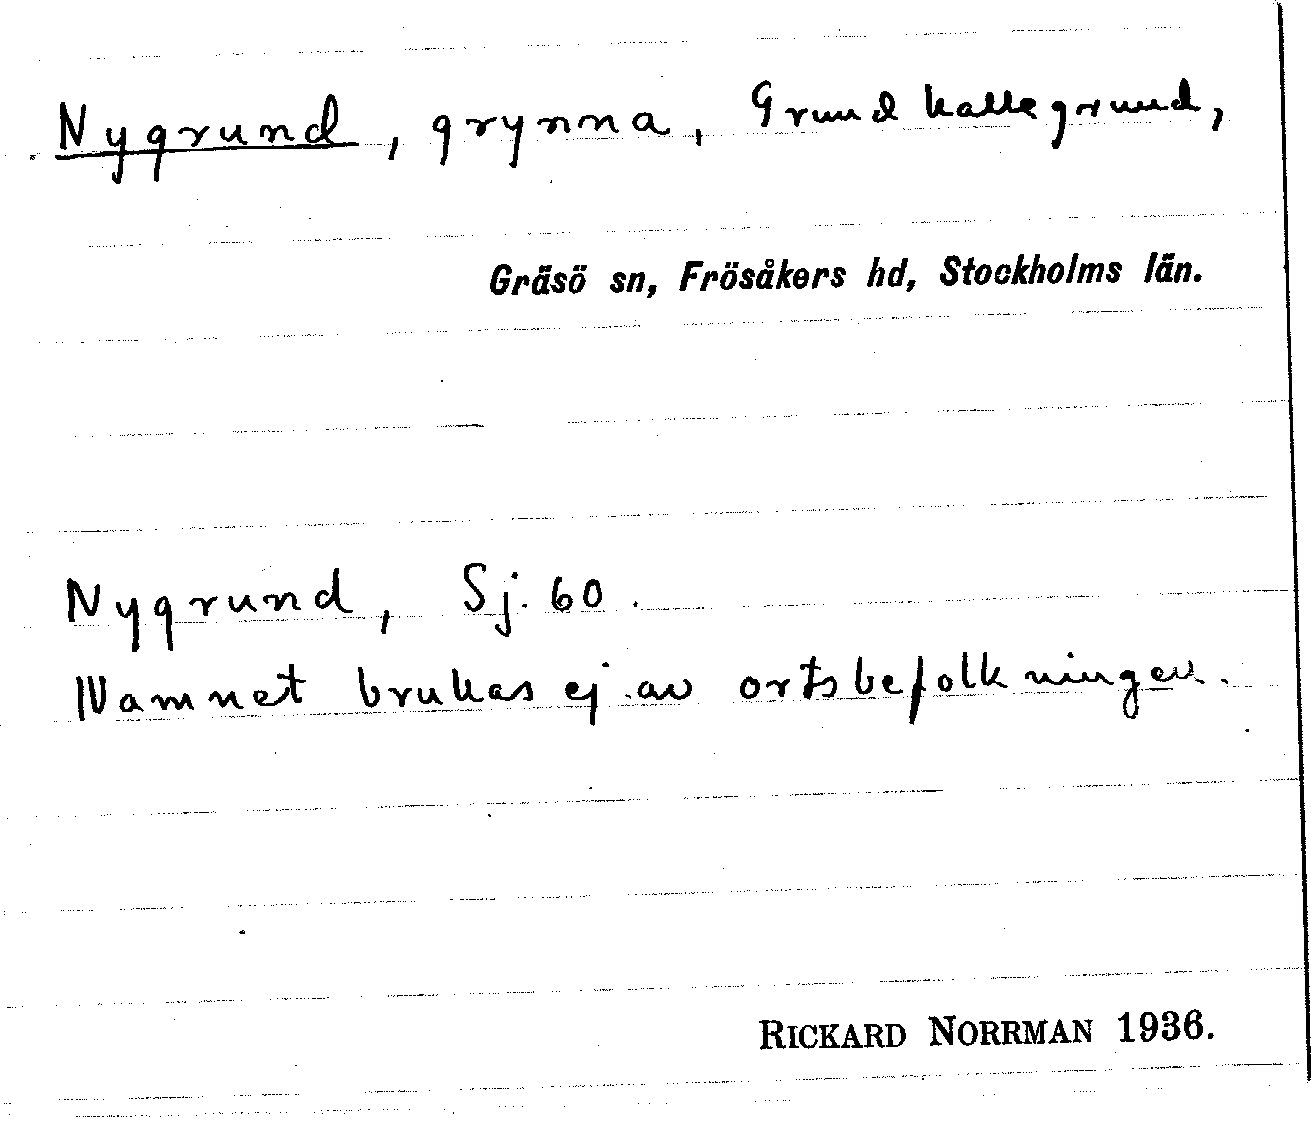 Nygrund, grynna, Grundkallegrund,
Gräsö sn, Frösåkers hd, Stockholms län.
Nygrund, Sj. 60.
Namnet brukas ej av ortsbefolkningen.
RICKARD NORRMAN 1936.